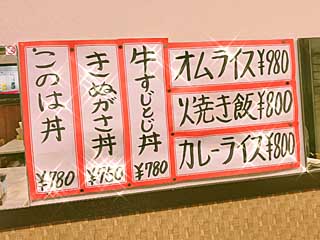 このは丼
¥780
きぬがさ丼
¥750
牛すじとじ丼
¥780
オムライス¥980
火焼き飯¥800
カレーライス¥800